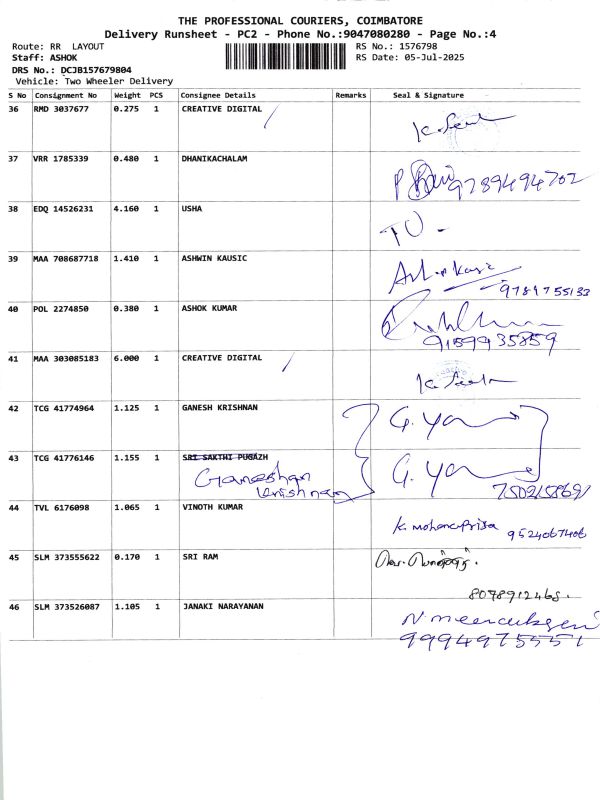 THE PROFESSIONAL COURIERS, COIMBATORE
Delivery Runsheet - PC2 - Phone No.:9047080280 - Page No.:4
Route: RR LAYOUT
RS No.: 1576798
Staff: ASHOK
RS Date: 05-Jul-2025
DRS No.: DCJB157679804
Vehicle: Two Wheeler Delivery
S No Consignment No Weight PCS Consignee Details Remarks Seal & Signature
36 RMD 3037677 0.275 1 CREATIVE DIGITAL
37 VRR 1785339 0.480 1 DHANIKACHALAM
9789494702
38 EDQ 14526231 4.160 1 USHA
39 MAA 708687718 1.410 1 ASHWIN KAUSIC
9789755133
40 POL 2274850 0.380 1 ASHOK KUMAR
9159935859
41 MAA 303085183 6.000 1 CREATIVE DIGITAL
42 TCG 41774964 1.125 1 GANESH KRISHNAN
43 TCG 41776146 1.155 1 SRI SAKTHI PUGAZH
Ganeshan
Krishnan
44 TVL 6176098 1.065 1 VINOTH KUMAR
K. mohanapriya 9524067406
45 SLM 373555622 0.170 1 SRI RAM
8098912468.
46 SLM 373526087 1.105 1 JANAKI NARAYANAN
N. meenakshi
9994975551